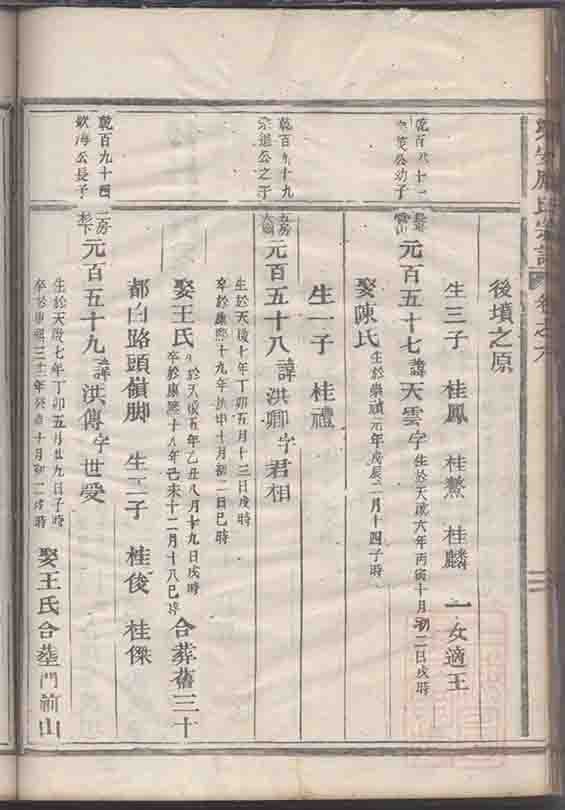 卷之六
後墳之原
生三子 桂鳳 桂鰲 桂麟 一女適王
乾百八十一
公幼子
元百五十七諱天雲字生於天啟六年丙寅十月初二日戌時
娶陳氏生於崇禎元年戊辰二月十四子時
生一子 桂禮
乾百九十九
宗道公之子
五房
元百五十八諱洪卿字君相
生於天啟七年丁卯五月十三日戌時
卒於康熙十九年庚申十月初二日巳時
娶王氏生於天啟五年乙丑八月十九日戌時
卒於康熙十八年己未十二月十八巳時
合葬舊三十
都白路頭嶺脚 生二子 桂俊 桂傑
乾百九十四
欽海公長子
二房
杉下
元百五十九諱洪傳字世愛
生於天啟七年丁卯五月廿九日子時
卒於康熙三十二年癸酉十月初二戌時
娶王氏合塟門前山